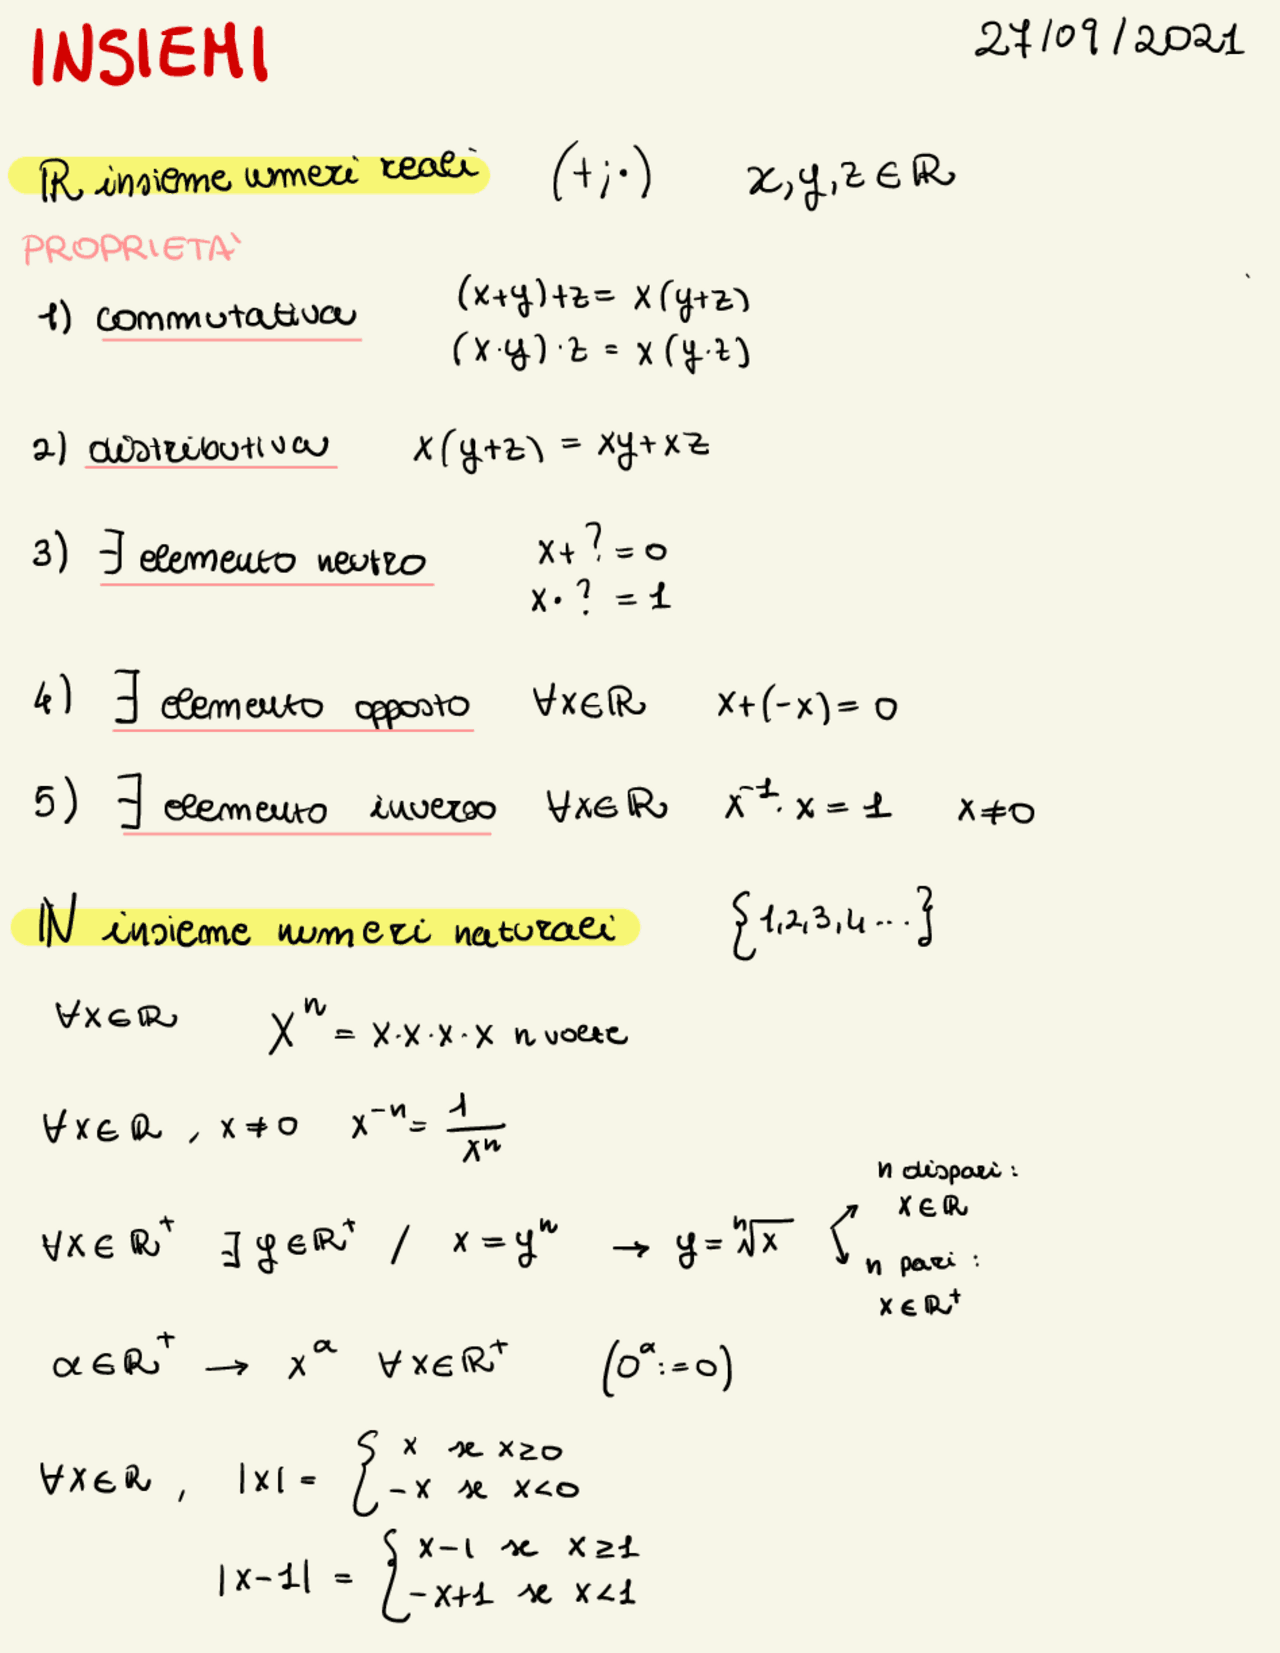 INSIEMI 27/09/2021
ℝ insieme numeri reali (+;·) x,y,z∈ℝ
PROPRIETA'
1) commutativa (x+y)+z= x(y+z)
(x·y)·z = x(y·z)
2) distributiva x(y+z) = xy+xz
3) ∃ elemento neutro x+?=0
x·? =1
4) ∃ elemento opposto ∀x∈ℝ x+(-x)=0
5) ∃ elemento inverso ∀x∈ℝ x⁻¹·x=1 x≠0
ℕ insieme numeri naturali {1,2,3,4...}
∀x∈ℝ xⁿ= x·x·x·x n volte
∀x∈ℝ, x≠0 x⁻ⁿ= 1/xⁿ
∀x∈ℝ⁺ ∃y∈ℝ⁺ / x=yⁿ → y=ⁿ√x
n dispari:
x∈ℝ
n pari:
x∈ℝ⁺
α∈ℝ⁺ → x^α ∀x∈ℝ⁺ (0^α:=0)
∀x∈ℝ, |x|= { x se x≥0
-x se x<0
|x-1| = { x-1 se x≥1
-x+1 se x<1